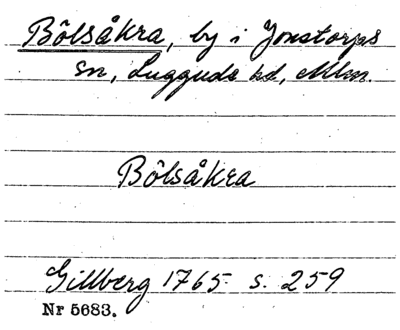 Bölsåkra, by i Jonstorps
sn, Luggude hd, Mlm.
Bölsåkra
Gillberg 1765 s. 259
Nr 5683.